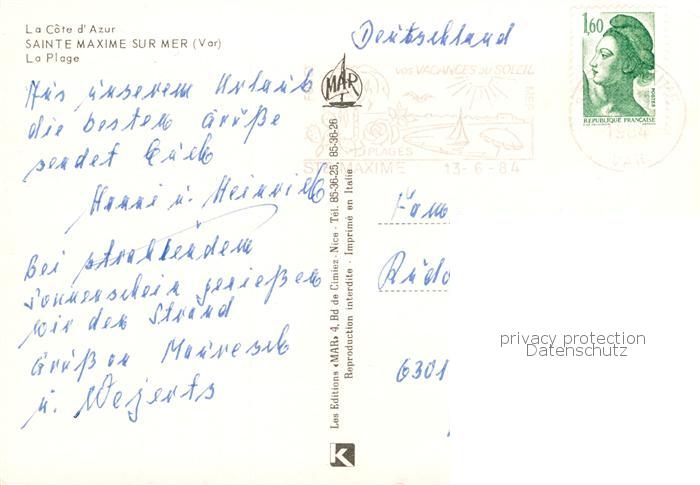 La Côte d'Azur
SAINTE MAXIME SUR MER (Var)
La Plage
Aus unserem Urlaub
die besten Grüße
sendet Euch
Hanni u. Heinrich
Bei strahlendem
Sonnenschein genießen
wir den Strand
Grüß an
u. Wejerts
Les Editions «MAR» 4, Bd de Cimiez - Nice - Tél. 85-36-25, 85-36-26
Reproduction interdite - Imprimé en Italie
MAR
K
Deutschland
VOS VACANCES AU SOLEIL
PLAGES
STE MAXIME 13-6-84
1,60
POSTES
REPUBLIQUE FRANÇAISE
VAR
Fam
Rudo
6301
privacy protection
Datenschutz